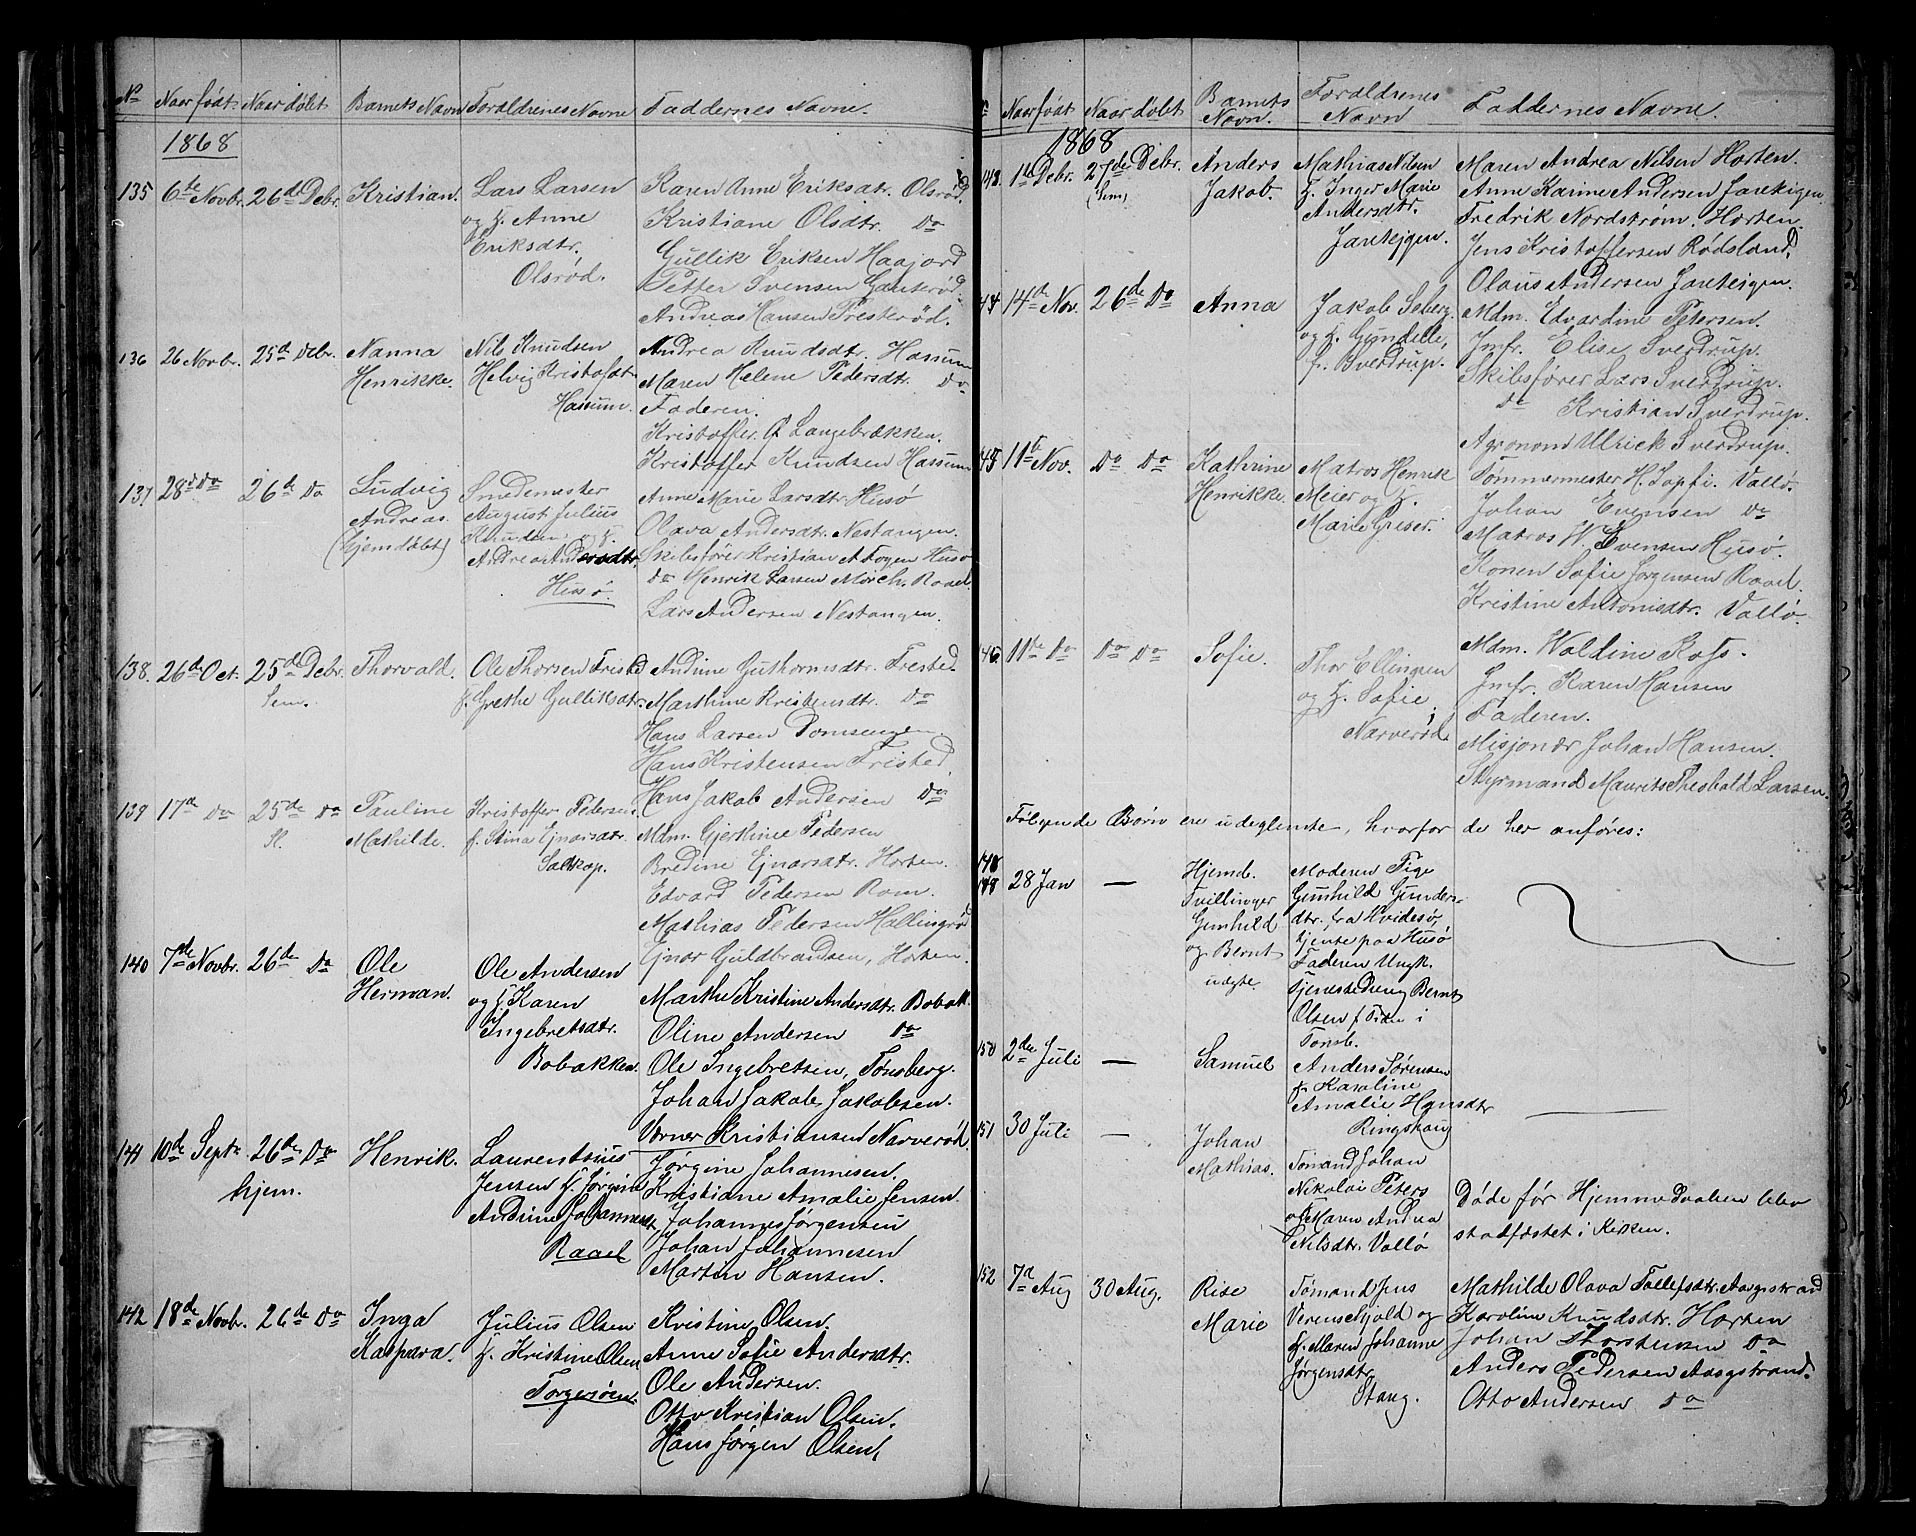 No Naar født. Naar døbt Barnets Navn Foraldrenes Navne Faddernes Navne.
1868
135 6te Novbr. 26de Debr. Kristian.
Lars Larsen
og H. Anne
Eriksdtr.
Olsrød.
Karen Anne Eriksdtr. Olsrød.
Kristiane Olsdtr. Do
Gullik Eriksen Haajord
Petter Svensen Gauterød.
Andreas Hansen Presterød.
136 26 Novbr. 25de Debr. Nanna
Henrikke.
Nils Knudsen
Helvig Kristofdt
Hassum.
Andrea Knudsdtr. Hassum
Maren Helene Pedersdtr. Do
Faderen.
Kristoffer Langebrækken.
Kristoffer Knudsen Hassum
137 28de Do 26de Do Ludvig
Andreas.
(hjemdøbt)
Smedemester
August Julius
Knudsen og H.
Andrea Andersdtr.
Husø.
Anne Marie Larsdtr. Husø
Olava Andersdtr. Nestangen.
Skibsfører Kristian A Foyen Husø
Do Henrik Larsen Mørch. Raael
Lars Andersen Nestangen.
138. 26de Oct. 25de Debr. Thorvald.
Sem.
Ole Thorsen Fristed
H. Grethe Gulliksdtr.
Andrine Guthormsdtr. Frested.
Marthine Kristensdtr. Do
Hans Larsen Domsengen
Hans Kristensen Fristed
Hans Jakob Andersen Do
139 17de Do 25de Do Pauline
Sl. Mathilde.
Kristoffer Pedersen
H. Stina Ejnarsdtr.
Saltkop.
Mdm. Gjertine Pedersen
Bredine Ejnarsdtr. Horten.
Edvard Pedersen Rom.
Mathias Pedersen Hallingrød
Ejnor Guldbrandsen, Horten.
140 7de Novbr. 26de Do Ole
Herman.
Ole Andersen
og H Karen
Ingebretsdtr.
Bobakken.
Marthe Kristine Andersdtr. Bobak.
Oline Andersen Do
Ole Ingebretsen, Tønsberg.
Johan Jakob Jakobsen.
Verner Kristiansen Narverød.
141 10de Septr. 26de Do Henrik.
hjem.
Laurentsius
Jensen H. Jørgine
Andrine Johannesdt.
Raael
Jørgine Johannesen.
Kristiane Amalie Jensen.
Johannes Jørgensen
Johan Johannesen
Martin Hansen.
142 18de Novbr. 26de Do Inga
Kaspara.
Julius Olsen
H. Kristine Olsen
Torgersøen.
Kristine Olsen.
Anne Sofie Andersdtr.
Ole Andersen.
Otto Kristian Olsen.
Hans Jørgen Olsen.
Naar født Naar døbt Barnets Navn. Foraldrenes Navn Faddernes Navne.
1868
143. 1te Debr. 27de Debr. Anders
(Sem) Jakob.
Mathias Nilsen
H. Inger Marie
Andersdtr.
Jarteigen.
Maren Andrea Nilsen Horten.
Anne Karine Andersen Jarteigen
Fredrik Nordstrøm. Horten.
Jens Kristoffersen Rødsland.
Olaus Andersen Jarteigen.
144 14de Nov. 26de Do Anna
Jakob Seberg.
og H. Gundelle,
f. Sverdrup.
Mdm. Edvardine Petersen.
Jmfr. Elise Sverdrup.
Skibsfører Lars Sverdrup.
Do Kristian Sverdrup.
Agronom Ulrick Sverdrup.
145 11te Nov. Do Do Kathrine
Henrikke.
Matros Henrik
Meier og H.
Marie Greser.
Tømmermester H. Topfi. Vallø.
Johan Evensen Do
Matros W. Evensen Husø.
Konen Sofie Jørgensen Raael.
Kristine Antonisdtr. Vallø.
146 11te Do Do Do Sofie.
Thor Ellingsen
og H. Sofie
Narverød.
Mdm. Waldine Rofs.
Jmfr. Karen Hansen
Faderen.
Misjonær Johan Hansen.
Styrmand Maurits Theobald Larsen.
Følgende Børn ere udeglemte, hvorfor de her anføres:
148
149 28 Jan — Hjemd.
Tvillinger
Gunhild
og Bernt
udgte.
Moderen Pige
Gunhild Gunders-
dtr. fra Hvidesø,
tjente paa Husø
Faderen Ungk.
Tjenestedreng Bernt
Olsen f Tiden i
Tønsb.
150 2den Juli — Samuel
Anders Sørensen
H. Karoline
Amalie Hansdtr
Ringshaug
151 30 Juli — Johan
Mathias.
Tømand Johan
Nikolai Peters
og Maren Andrea
Nilsdtr. Vallø
Døde før Hjemmedaaben blev
stadfæstet i Kirken.
152 7de Aug 30 Aug. Rise
Marie
Tømand Jens
Verenskjold og
H. Maren Johanne
Jørgensdtr.
Stang.
Mathilde Olava Tollefsdtr. Aasgstrand
Karoline Knudsdtr. Horten
Johan Thorstensen Do
Anders Pedersen Aasgstrand.
Otto Andersen Do